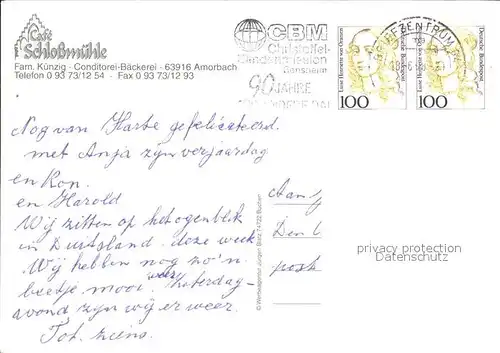 Café
Schloßmühle
Fam. Künzig - Conditorei-Bäckerei - 63916 Amorbach
Telefon 0 93 73/12 54 - Fax 0 93 73/12 93
CBM
Christoffel-
Blindenmission
Bensheim
90 JAHRE
BRIEFZENTRUM
Luise Henriette von Oranien
Deutsche Bundespost
100
Luise Henriette von Oranien
Deutsche Bundespost
100
Nog van Harte gefeliciteerd
met Anja zijn verjaardag
en Ron.
en Harold
Wij zitten op het ogenblik
in Duitsland deze week
Wij hebben nog zo'n
beetje mooi weer. Zaterdag-
avond zijn wij er weer.
Tot ziens.
© Werbeagentur Jürgen Brötz 74722 Buchen
Aan
Den
post
privacy protection
Datenschutz